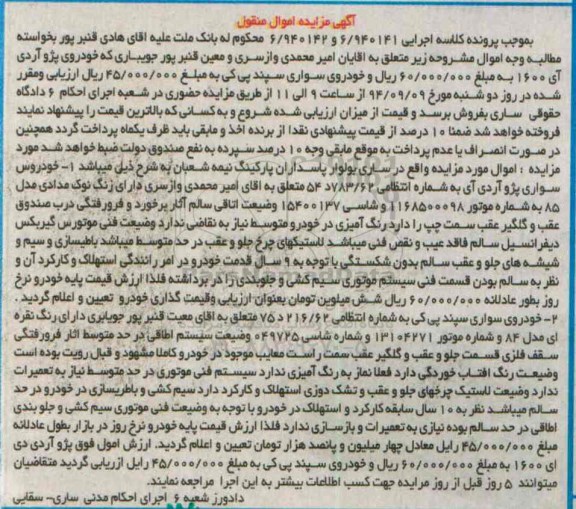 آگهی مزایده اموال منقول
بموجب پرونده کلاسه اجرایی ۶/۹۴۰۱۴۱ و ۶/۹۴۰۱۴۲ محکوم له بانک ملت علیه اقای هادی قنبر پور بخواسته
مطالبه وجه اموال مشروحه زیر متعلق به اقایان امیر محمدی وازسری و معین قنبر پور جویباری که خودروی پژو آردی
آی ۱۶۰۰ به مبلغ ۶۰/۰۰۰/۰۰۰ ریال و خودروی سواری سپند پی کی به مبلغ ۴۵/۰۰۰/۰۰۰ ریال ارزیابی ومقرر
شده در روز دو شنبه مورخ ۹۴/۰۹/۰۹ از ساعت ۹ الی ۱۱ از طریق مزایده حضوری در شعبه اجرای احکام ۶ دادگاه
حقوقی ساری بفروش برسد و قیمت از میزان ارزیابی شده شروع و به کسانی که بالاترین قیمت را پیشنهاد نمایند
فروخته خواهد شد ضمنا ۱۰ درصد از قیمت پیشنهادی نقدا از برنده اخذ و مابقی باید ظرف یکماه پرداخت گردد همچنین
در صورت انصراف یا عدم پرداخت به موقع مابقی وجه ۱۰ درصد سپرده به نفع صندوق دولت ضبط خواهد شد مورد
مزایده : اموال مورد مزایده واقع در ساری بولوار پاسداران پارکینگ نیمه شعبان به شرح ذیل میباشد ۱- خودروس
سواری پژو آردی آی به شماره انتظامی ۷۸۳/۶۲د ۵۴ متعلق به اقای امیر محمدی وازسری دارای رنگ نوک مدادی مدل
۸۵ به شماره موتور ۱۱۶۸۵۰۰۰۹۸ و شاسی ۱۵۴۰۰۱۳۷ وضیعت اتاقی سالم آثار برخورد و فرورفتگی درب صندوق
عقب و گلگیر عقب سمت چپ را دارد رنگ آمیزی در خودرو متوسط نیاز به نقاضی ندارد وضعیت فنی موتورس گیربکس
دیفرانسیل سالم فاقد عیب و نقص فنی میباشد لاستیکهای چرخ جلو و عقب در حد متوسط میباشد باطیسازی و سیم و
شیشه های جلو و عقب سالم بدون شکستگی با توجه به ۹ سال قدمت خودرو در امر رانندگی استهلاک و کارکرد آن و
نظر به سالم بودن قسمت فنی سیستم موتوری سیم کشی و جلوبندی را در برداشته فلذا ارزش قیمت پایه خودرو نرخ
روز بطور عادلانه ۶۰/۰۰۰/۰۰۰ ریال شش میلوین تومان بعنوان ارزیابی وقیمت گذاری خودرو تعیین و اعلام گردید .
۲- خودروی سواری سپند پی کی به شماره انتظامی ۲۱۶/۶۲ د ۷۵ متعلق به اقای معیت قنبر پور جویابری دارای رنگ نقره
ای مدل ۸۴ و شماره موتور ۱۳۱۰۴۲۷۱ و شماره شاسی ۰۴۹۷۲۵ وضیعت سیستم اطاقی در حد متوسط آثار فرورفتگی
سقف فلزی قسمت جلو و عقب و گلگیر عقب سمت راست معایب موجود در خودرو کاملا مشهود و قبال رویت بوده است
وضیعت رنگ افتاب خوردگی دارد فعلا نماز به رنگ آمیزی ندارد سیستم فنی موتوری در حد متوسط نیاز به تعمیرات
ندارد وضعیت لاستیک چرخهای جلو و عقب و تشک دوزی استهلاک و کارکرد دارد سیم کشی و باطریسازی در خودرو در حد
سالم میباشد نظر به ۱۰ سال سابقه کارکرد و استهلاک در خودرو با توجه به وضعیت فنی موتوری سیم کشی و جلو بندی
اطاقی در حد سالم بوده نیازی به تعمیرات و بازسازی ندارد فلذا ارزش قیمت پایه خودرو نرخ روز در بازار بطول عادلانه
مبلغ ۴۵/۰۰۰/۰۰۰ رایل معادل چهار میلیون و پانصد هزار تومان تعیین و اعلام گردید. ارزش امول فوق پژو آردی دی
ای ۱۶۰۰ به مبلغ ۶۰/۰۰۰/۰۰۰ ریال و خودروی سپند پی کی به مبلغ ۴۵/۰۰۰/۰۰۰ رایل ازریابی گردید متقاضیان
میتوانند ۵ روز قبل از روز مرایده جهت کسب اطلاعات بیشتر به این اجرا مراجعه نمایند.
دادورز شعبه ۶ اجرای احکام مدنی ساری- سقایی